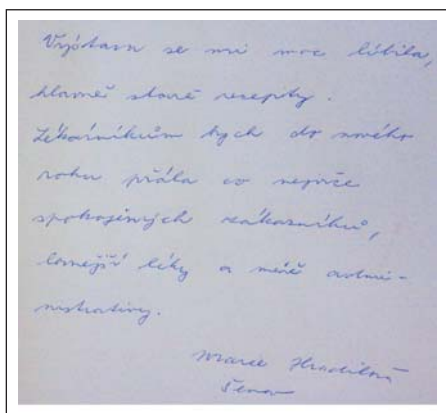 Výstava se mi moc líbila,
hlavně staré recepty.
Lékárníkům bych do nového
roku přála co nejvíce
spokojených zákazníků,
levnější léky a méně admi-
nistrativy.
Marie Hradilová